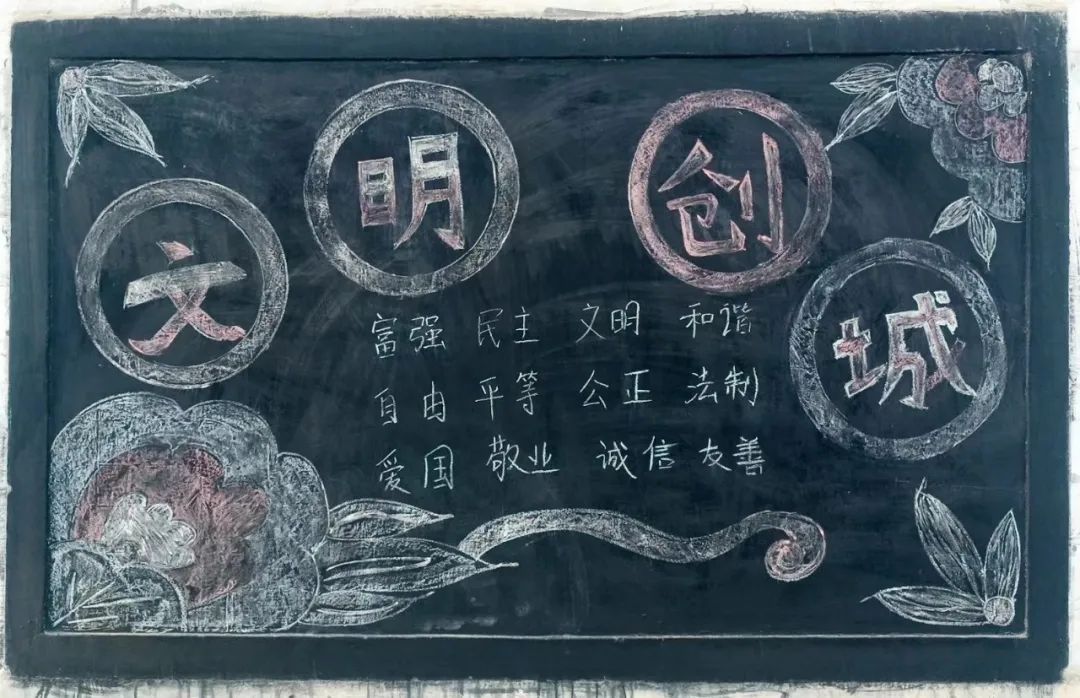 文明创城
富强 民主 文明 和谐
自由 平等 公正 法制
爱国 敬业 诚信 友善